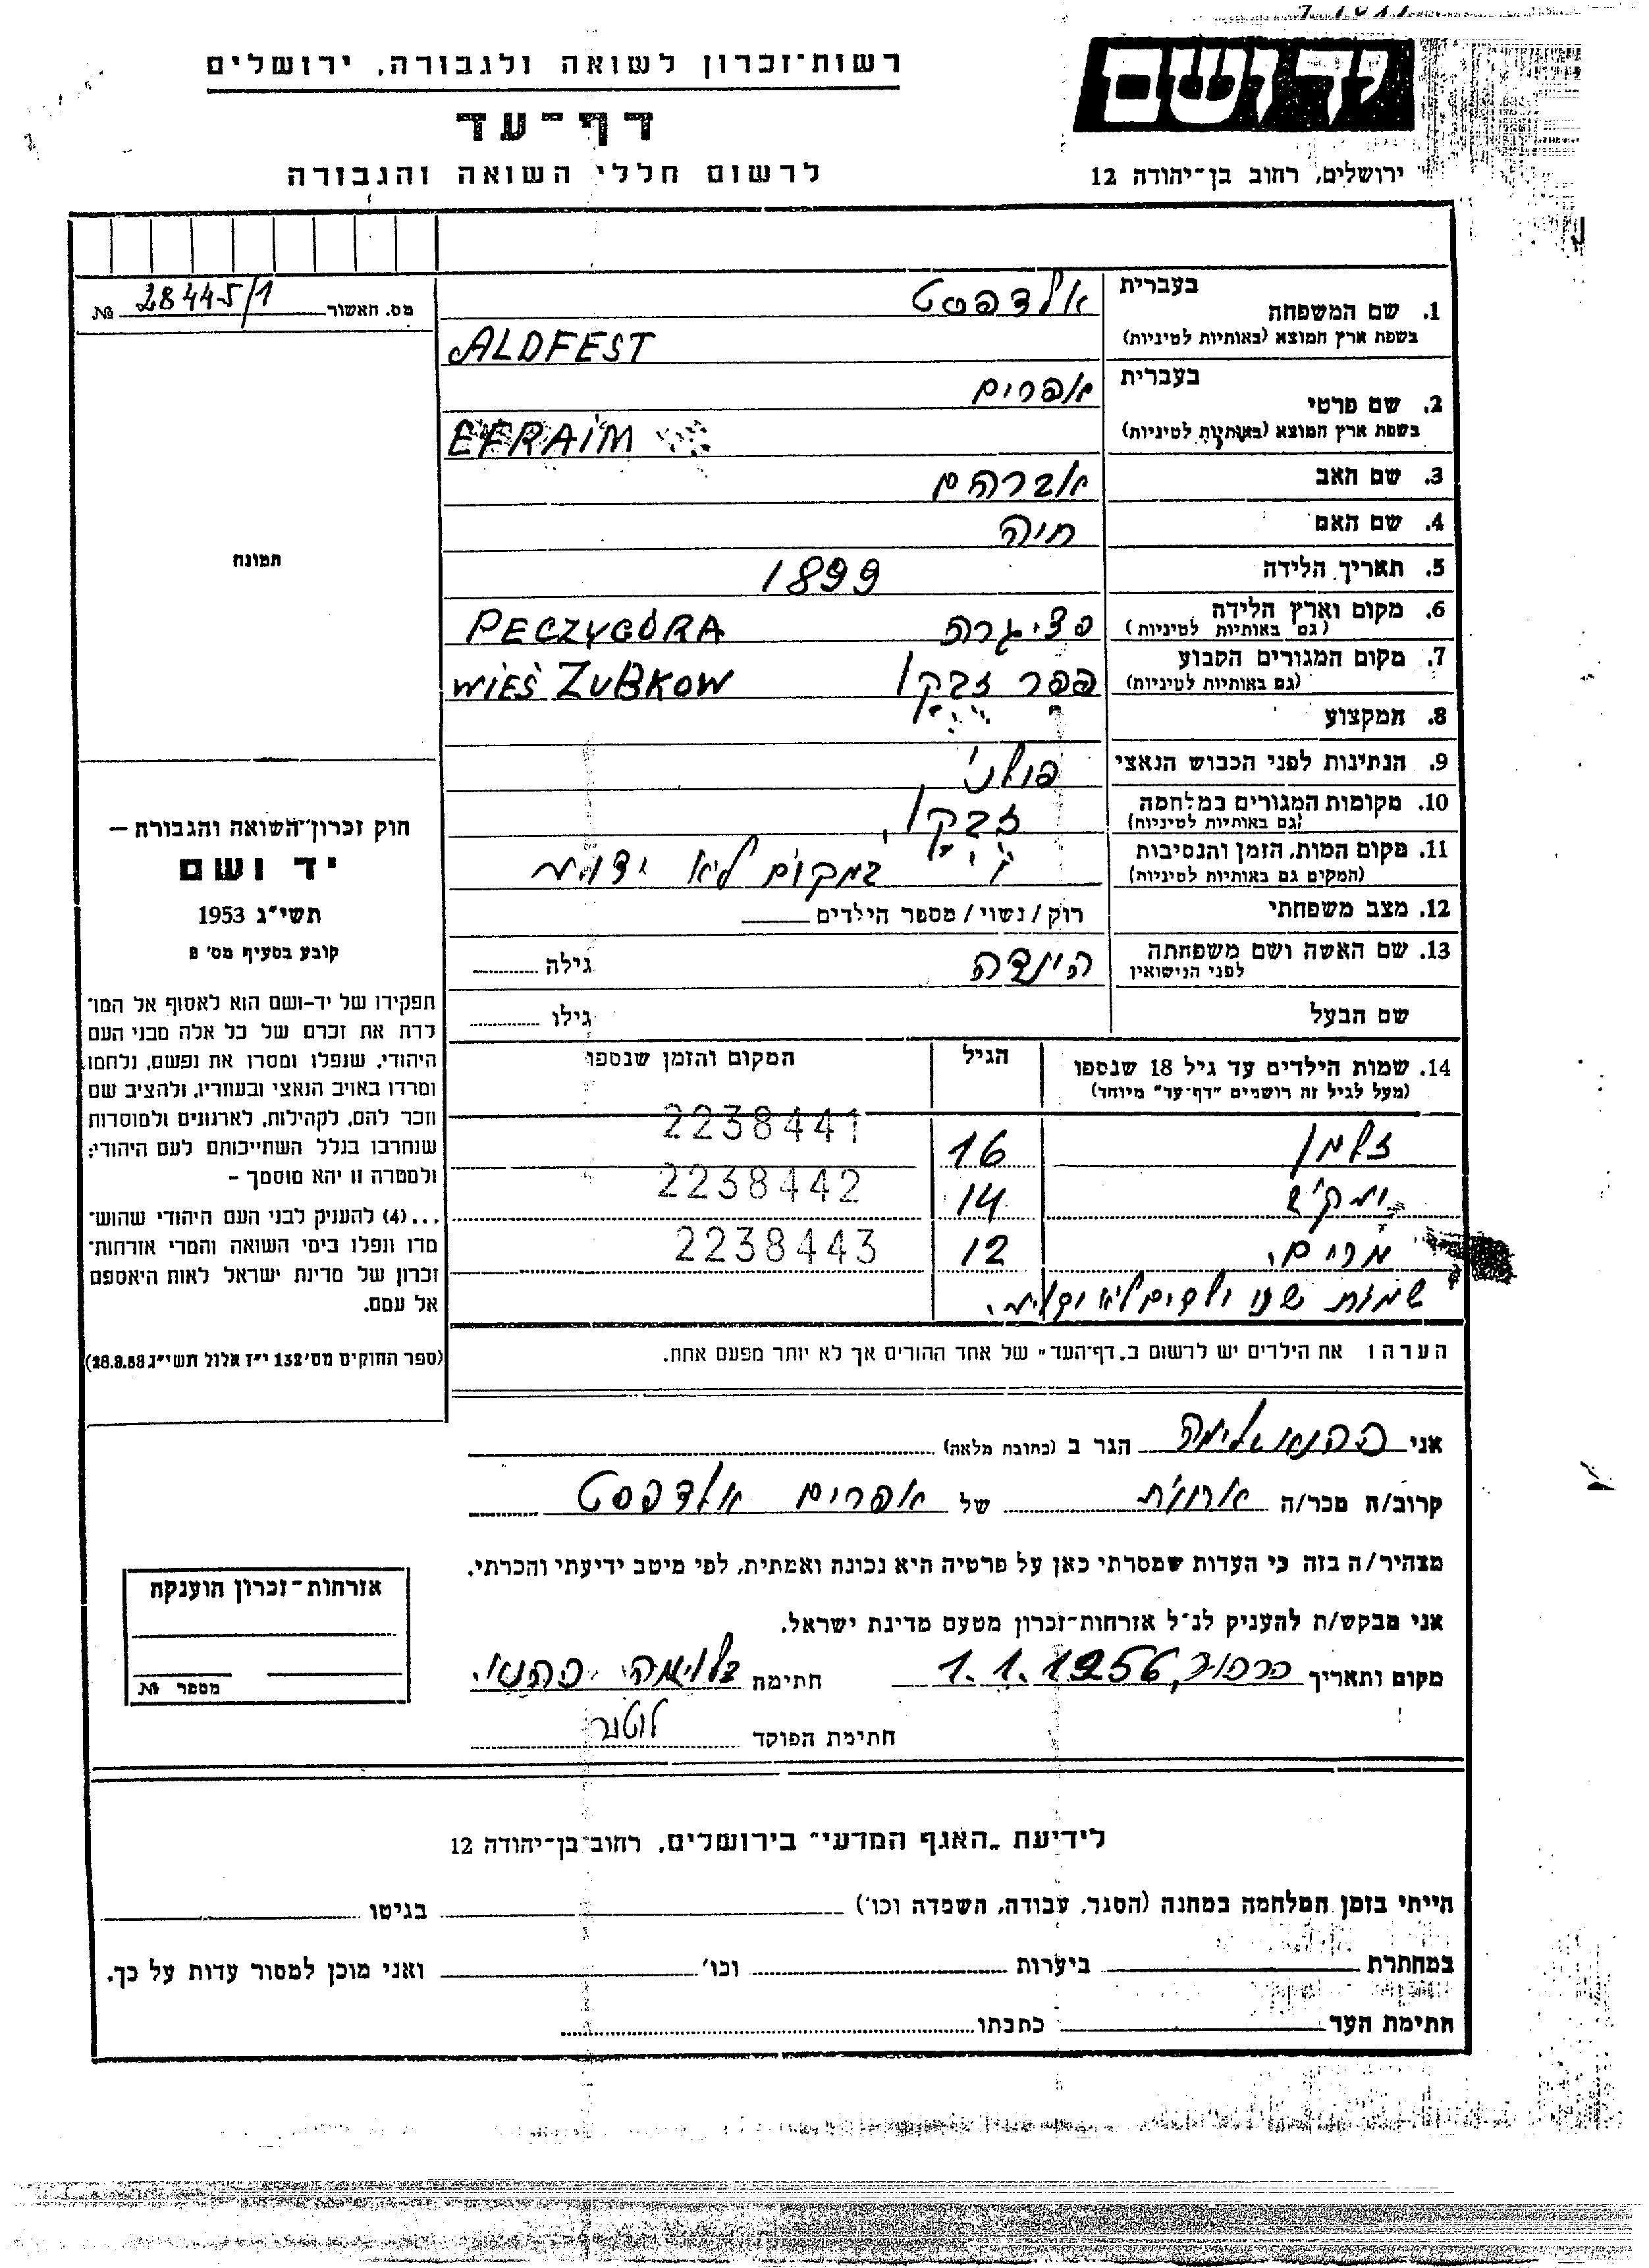 רשות־זכרון לשואה ולגבורה, ירושלים
יד ושם
דף־עד
לרשום חללי השואה והגבורה
ירושלים, רחוב בן־יהודה 12
מס. האשור 28445/1 №
1. שם המשפחה
בעברית אלדפסט
בשפת ארץ המוצא (באותיות לטיניות) ALDFEST
2. שם פרטי
בעברית אפרים
בשפת ארץ המוצא (באותיות לטיניות) EFRAIM
3. שם האב אברהם
4. שם האם חיה
5. תאריך הלידה 1899
6. מקום וארץ הלידה פציגרה PECZYGÓRA
(גם באותיות לטיניות)
7. מקום המגורים הקבוע כפר זבקו WIEŚ ZUBKOW
(גם באותיות לטיניות)
8. המקצוע
9. הנתינות לפני הכבוש הנאצי פולני
10. מקומות המגורים במלחמה זבקו
(גם באותיות לטיניות)
11. מקום המות, הזמן והנסיבות במקום לא ידוע
(המקום גם באותיות לטיניות)
12. מצב משפחתי רוק / נשוי / מספר הילדים
13. שם האשה ושם משפחתה הינדה גילה
לפני הנישואין
שם הבעל גילו
14. שמות הילדים עד גיל 18 שנספו הגיל המקום והזמן שנספו
(מעל לגיל זה רושמים "דף־עד" מיוחד)
זלמן 16 2238441
14 2238442
מרים. 12 2238443
שמות שני ילדים לא
הערהו את הילדים יש לרשום ב„דף־העד" של אחד ההורים אך לא יותר מפעם אחת.
תמונה
חוק זכרון־השואה והגבורה —
יד ושם
תשי״ג 1953
קובע בסעיף מס' 8
תפקידו של יד-ושם הוא לאסוף אל המו־
לדת את זכרם של כל אלה מבני העם
היהודי, שנפלו ומסרו את נפשם, נלחמו
ומרדו באויב הנאצי ובעוזריו, ולהציב שם
וזכר להם, לקהילות, לארגונים ולמוסדות
שנחרבו בגלל השתייכותם לעם היהודי;
ולמטרה זו יהא מוסמך –
...(4) להעניק לבני העם היהודי שהוש־
מדו ונפלו בימי השואה והמרי אזרחות־
זכרון של מדינת ישראל לאות היאספם
אל עמם.
(ספר החוקים מס' 132 י״ז אלול תשי״ג 28.8.53)
אני הגר ב (כתובת מלאה)
קרוב/ה מכר/ה של אפרים אלדפסט
מצהיר/ה בזה כי העדות שמסרתי כאן על פרטיה היא נכונה ואמתית, לפי מיטב ידיעתי והכרתי.
אני מבקש/ת להעניק לנ״ל אזרחות־זכרון מטעם מדינת ישראל.
מקום ותאריך 1.1.1956 חתימת
חתימת הפוקד
אזרחות־זכרון הוענקה
מספר №
לידיעת „האגף המדעי" בירושלים, רחוב בן־יהודה 12
הייתי בזמן המלחמה במחנה (הסגר, עבודה, השמדה וכו') בגיטו
במחתרת ביערות וכו' ואני מוכן למסור עדות על כך.
חתימת העד כתבתו